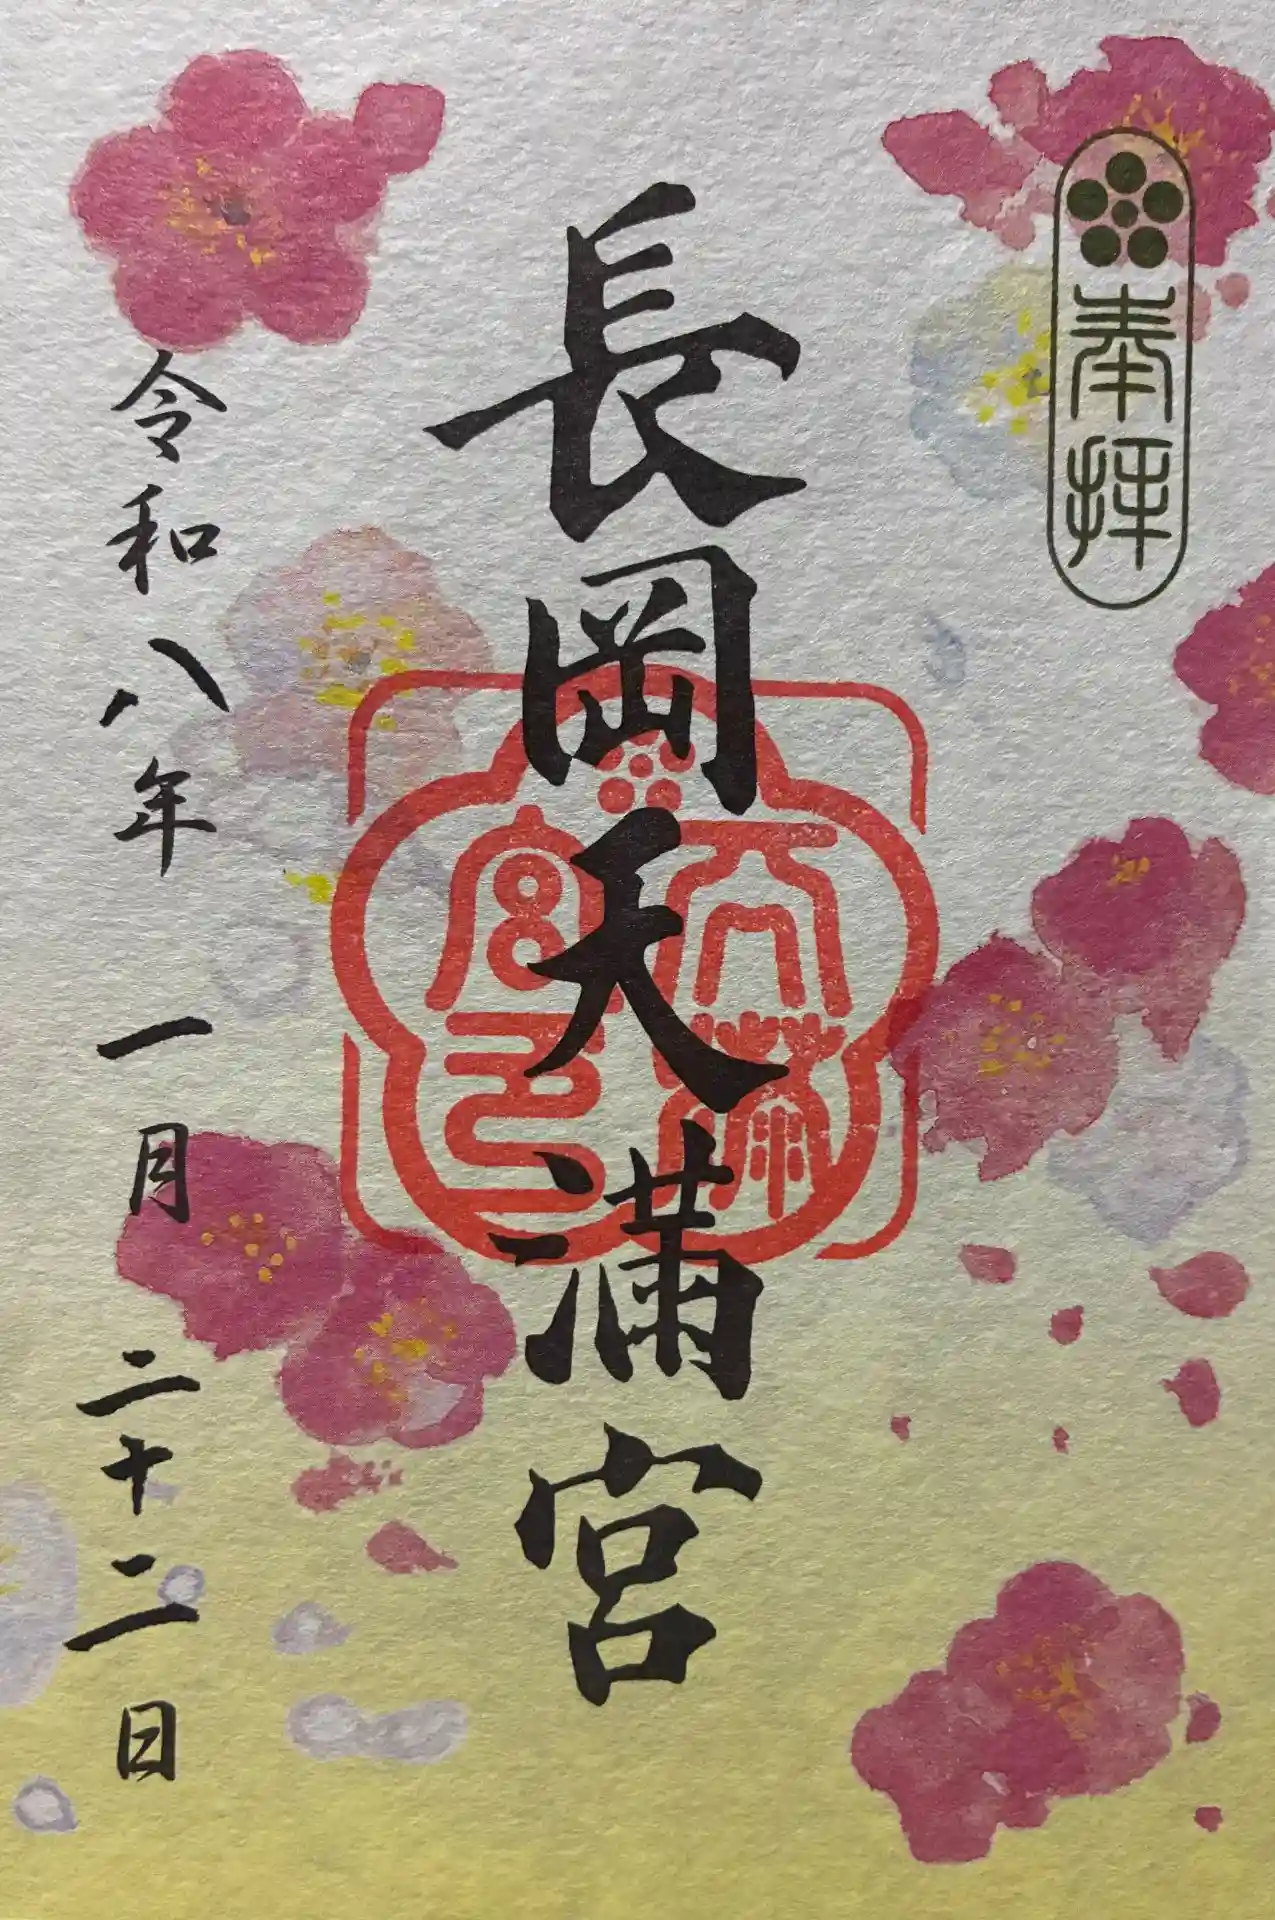 奉拝
長岡天満宮
天満
宮印
令和八年一月二十二日